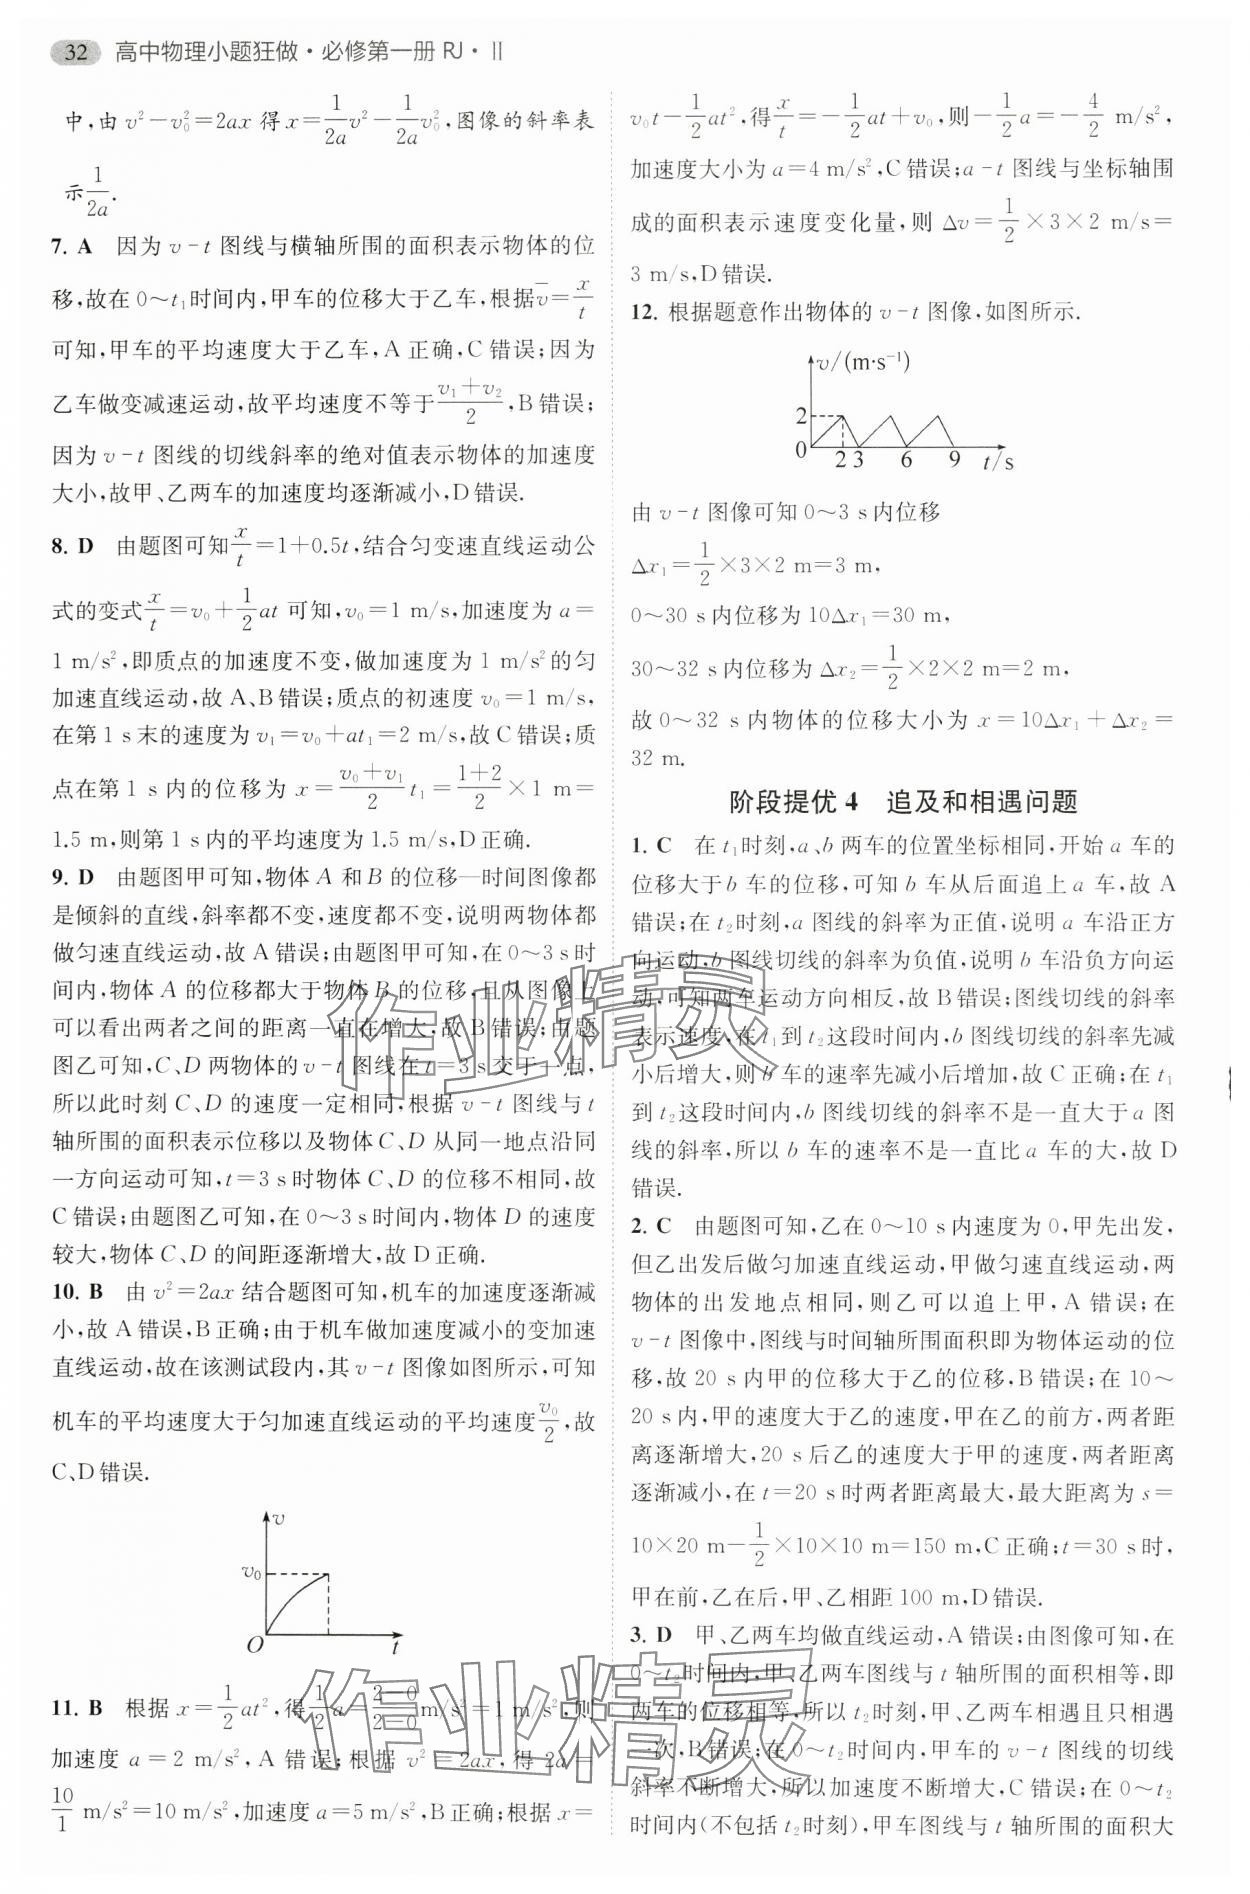 32 高中物理小题狂做·必修第一册 RJ·Ⅱ
中,由 v²－v₀²=2ax 得 x=\frac{1}{2a}v²－\frac{1}{2a}v₀²,图像的斜率表
示\frac{1}{2a}.
7. A 因为 v-t 图线与横轴所围的面积表示物体的位
移,故在 0～t₁时间内,甲车的位移大于乙车,根据\overline{v}=\frac{x}{t}
可知,甲车的平均速度大于乙车,A 正确,C 错误;因为
乙车做变减速运动,故平均速度不等于\frac{v₁+v₂}{2},B 错误;
因为 v-t 图线的切线斜率的绝对值表示物体的加速度
大小,故甲、乙两车的加速度均逐渐减小,D 错误.
8. D 由题图可知\frac{x}{t}=1+0.5t,结合匀变速直线运动公
式的变式\frac{x}{t}=v₀+\frac{1}{2}at 可知,v₀=1 m/s,加速度为 a=
1 m/s²,即质点的加速度不变,做加速度为 1 m/s²的匀
加速直线运动,故 A、B 错误;质点的初速度 v₀=1 m/s,
在第 1 s 末的速度为 v₁=v₀+at₁=2 m/s,故 C 错误;质
点在第 1 s 内的位移为 x=\frac{v₀+v₁}{2}t₁=\frac{1+2}{2}×1 m=
1.5 m,则第 1 s 内的平均速度为 1.5 m/s,D 正确.
9. D 由题图甲可知,物体 A 和 B 的位移—时间图像都
是倾斜的直线,斜率都不变,速度都不变,说明两物体都
做匀速直线运动,故 A 错误;由题图甲可知,在 0～3 s 时
间内,物体 A 的位移都大于物体 B 的位移,且从图像上
可以看出两者之间的距离一直在增大,故 B 错误;由题
图乙可知,C、D 两物体的 v-t 图线在 t=3 s 交于一点,
所以此时刻 C、D 的速度一定相同,根据 v-t 图线与 t
轴所围的面积表示位移以及物体 C、D 从同一地点沿同
一方向运动可知,t=3 s 时物体 C、D 的位移不相同,故
C 错误;由题图乙可知,在 0～3 s 时间内,物体 D 的速度
较大,物体 C、D 的间距逐渐增大,故 D 正确.
10. B 由 v²=2ax 结合题图可知,机车的加速度逐渐减
小,故 A 错误,B 正确;由于机车做加速度减小的变加速
直线运动,故在该测试段内,其 v-t 图像如图所示,可知
机车的平均速度大于匀加速直线运动的平均速度\frac{v₀}{2},故
C、D 错误.
v
v₀
O
t
11. B 根据 x=\frac{1}{2}at²,得\frac{1}{2}a=\frac{2-0}{2-0}m/s²=1 m/s²,则
加速度 a=2 m/s²,A 错误;根据 v²=2ax,得 2a=
\frac{10}{1} m/s²=10 m/s²,加速度 a=5 m/s²,B 正确;根据 x=
v₀t－\frac{1}{2}at²,得\frac{x}{t}=－\frac{1}{2}at+v₀,则－\frac{1}{2}a=－\frac{4}{2} m/s²,
加速度大小为 a=4 m/s²,C 错误;a-t 图线与坐标轴围
成的面积表示速度变化量,则 Δv=\frac{1}{2}×3×2 m/s=
3 m/s,D 错误.
12. 根据题意作出物体的 v-t 图像,如图所示.
v/(m·s⁻¹)
2
0
2 3 6 9 t/s
由 v-t 图像可知 0～3 s 内位移
Δx₁=\frac{1}{2}×3×2 m=3 m,
0～30 s 内位移为 10Δx₁=30 m,
30～32 s 内位移为 Δx₂=\frac{1}{2}×2×2 m=2 m,
故 0～32 s 内物体的位移大小为 x=10Δx₁+Δx₂=
32 m.
阶段提优 4 追及和相遇问题
1. C 在 t₁时刻,a、b 两车的位置坐标相同,开始 a 车的
位移大于 b 车的位移,可知 b 车从后面追上 a 车,故 A
错误;在 t₂时刻,a 图线的斜率为正值,说明 a 车沿正方
向运动,b 图线切线的斜率为负值,说明 b 车沿负方向运
动,可知两车运动方向相反,故 B 错误;图线切线的斜率
表示速度,在 t₁到 t₂这段时间内,b 图线切线的斜率先减
小后增大,则 b 车的速率先减小后增加,故 C 正确;在 t₁
到 t₂这段时间内,b 图线切线的斜率不是一直大于 a 图
线的斜率,所以 b 车的速率不是一直比 a 车的大,故 D
错误.
2. C 由题图可知,乙在 0～10 s 内速度为 0,甲先出发,
但乙出发后做匀加速直线运动,甲做匀速直线运动,两
物体的出发地点相同,则乙可以追上甲,A 错误;在
v-t 图像中,图线与时间轴所围面积即为物体运动的位
移,故 20 s 内甲的位移大于乙的位移,B 错误;在 10～
20 s 内,甲的速度大于乙的速度,甲在乙的前方,两者距
离逐渐增大,20 s 后乙的速度大于甲的速度,两者距离
逐渐减小,在 t=20 s 时两者距离最大,最大距离为 s=
10×20 m－\frac{1}{2}×10×10 m=150 m,C 正确;t=30 s 时,
甲在前,乙在后,甲、乙相距 100 m,D 错误.
3. D 甲、乙两车均做直线运动,A 错误;由图像可知,在
0～t₂时间内,甲、乙两车图线与 t 轴所围的面积相等,即
两车的位移相等,所以 t₂时刻,甲、乙两车相遇且只相遇
一次,B 错误;在 0～t₂时间内,甲车的 v-t 图线的切线
斜率不断增大,所以加速度不断增大,C 错误;在 0～t₂
时间内(不包括 t₂时刻),甲车图线与 t 轴所围的面积大
作业精灵
作业精灵